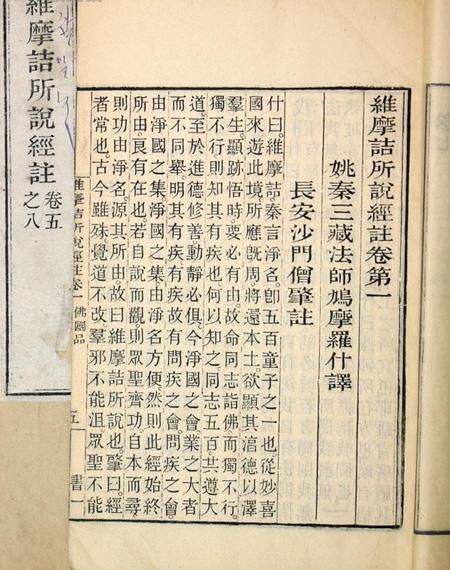 維摩詰所說經註卷第一
姚秦三藏法師鳩摩羅什譯
長安沙門僧肇註
什曰。維摩詰。秦言淨名。卽五百童子之一也。從妙喜
國來遊此境。所應旣周。將還本土。欲顯其淳德以澤
羣生。顯跡悟時。要必有由。故命同志詣佛而獨不行。
獨不行則知其有疾也。何以知之。同志五百。共遵大
道。至於進德修善。動靜必俱。今淨國之會。業之大者。
而不同舉。明其有疾。有疾故有問疾之會。問疾之會
由淨國之集。淨國之集由淨名方便。然則此經始終
所由。良有在也。若自說而觀。則眾聖齊功。自本而尋。
則功由淨名。源其所由。故曰維摩詰所說也。肇曰。經
者常也。古今雖殊。覺道不改。羣邪不能沮。眾聖不能
維摩詰所說經註卷一 佛國品 五 書一
維摩詰所說經註 卷五之八